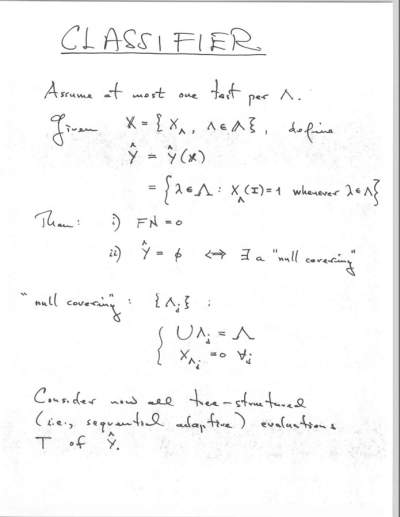 CLASSIFIER
Assume at most one test per Λ.
Given 𝕏 = { X_Λ, Λ ∈ 𝔸 }, define
Ŷ = Ŷ(𝕏)
= { λ ∈ Λ : X_Λ(I) = 1 whenever λ ∈ Λ }
Then: i) FN = 0
ii) Ŷ = ϕ ⟺ ∃ a "null covering"
"null covering": {Λ_j} :
{ ∪Λ_j = Λ
X_Λj = 0 ∀j
Consider now all tree-structured
(i.e., sequential adaptive) evaluations
T of Ŷ.